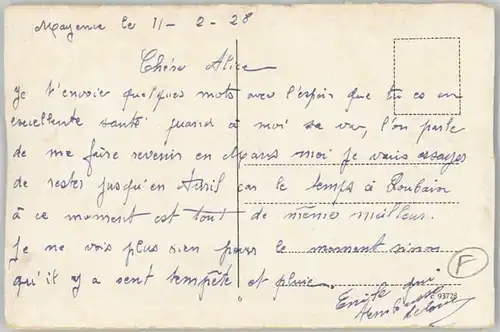 Mayence le 11 - 2 - 28
Chère Alice
Je t'envoier quelques mots avec l'espoir que tu es en
excellente santé quand à moi sa va, l'on parle
de me faire revenir en Mars moi Je vais essayer
de rester jusqu'en Avril car le temps à Roubaix
à ce moment est tout de même meilleur.
Je ne vois plus rien pour le moment sinon
qu'il y a vent tempête et pluie.
F
Emile qui
93728